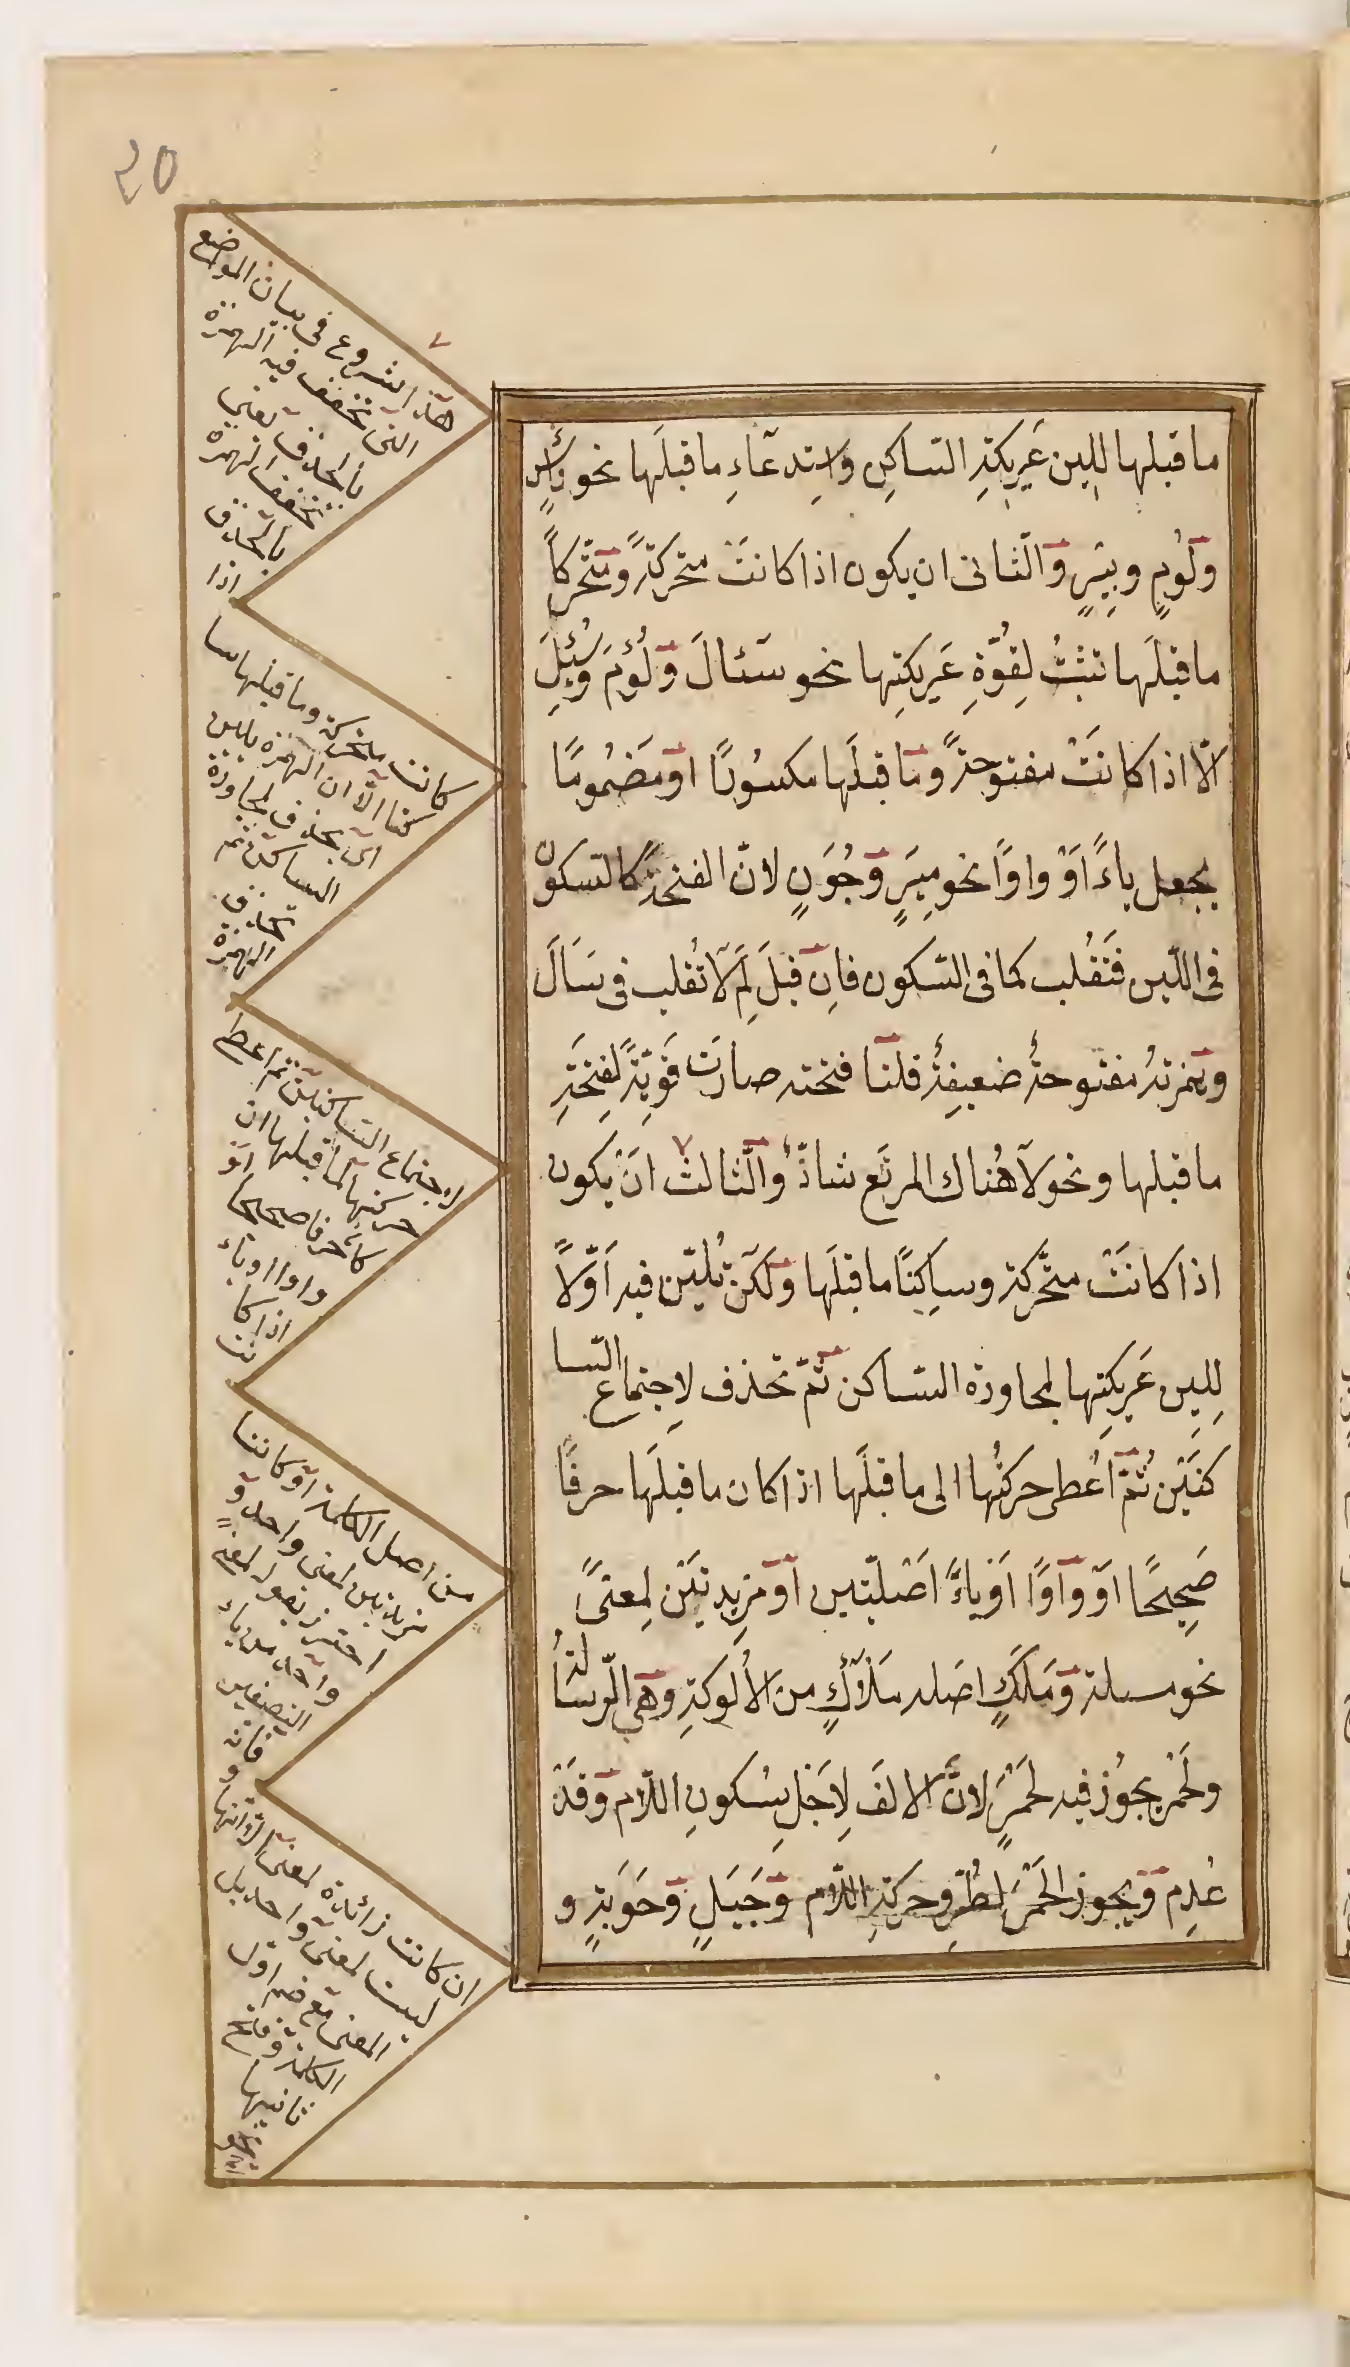 20
ما قبلها للين عَرِيكَةِ السّاكِنِ واستِدعَاءِ ما قبلَها نحو رَأْسٍ
وَلُومٍ وبِيرٍ وَالثّانى ان يكون اذا كانَتْ متحركةً وَمتَحَرِّكاً
ما قبلَها تثبُتُ لِقُوّةِ عَرِيكتِها نحو سَئَالَ وَلَؤُمَ وَسُئِلَ
الّا اذا كانَتْ مفتوحةً وما قبلَها مكسُورًا اَوْ مَضمُومًا
يجعل ياءً اَوْ واوًا نحو مِيَرٍ وَجُوَنٍ لانّ الفتحةَ كالسّكون
فى اللّين فتُقلب كما فى السّكون فاِن قيلَ لِمَ لا تُقلب فى سَاَلَ
وهمزتهُ مفتوحةٌ ضعيفةٌ قلنا فتحته صارَت قَوِيّةً لِفَتحَةِ
ما قبلها ونحو لا هُناك المرتَع شاذٌّ وَالثّالث اَنْ يكون
اذا كانَتْ متحَرِّكة وساكِنًا ما قبلَها وَلكن تُليّن فيه اَوّلًا
لِلِينِ عَرِيكتِها لمجاورة السّاكن ثمّ تحذف لاِجتماع السّا
كنَيْن ثُمّ اُعطى حركتُها الى ما قبلَها اذا كان ما قبلَها حرفًا
صَحِيحًا اَوْ وَاوًا اَوْ ياءً اَصْليّتين اَوْ مزيدتَيْن لِمعنًى
نحو مسلة وَمَلَكٍ اصَله مَلْأَكٍ من الاَلُوكَةِ وَهى الرّسالة
ولَحْمر يجوُز فيه لَحَمَر لانَّ الالفَ لِاَجَل سُكونِ اللّام وَقدْ
عُدِم وَيجوز الحَمَر لطُرِوِّ حركةِ اللّام وَجَيَلٍ وَحَوَبَةٍ و
هذا الشروع فى بيان المواضع
التى تخفف فيه الهمزة
بالحذف يعنى
تخفف الهمزة
بالحذف
اذا
كانت متحركة وما قبلها سا
كنا الّا ان الهمزة يلين
اى يحذف لمجاورة
الساكن ثم
تحذف
الهمزة
لاجتماع السّاكنين ثم اعطى
حركتها لما قبلها ان
كان حرفا صحيحا اَوْ
واوا اوياء
اذا كا
نت
من اصل الكلمة اَوْ كانتا
مزيدتين لمعنى واحد وَ
احترز بقوله لمعنى
واحد من ياء
التصغير
فانه و
ان كانت زائدة لمعنى الّا انّها
ليست لمعنى واحد بل
المعنى مع ضم اول
الكلمة وَفتح
ثانيها
نحو